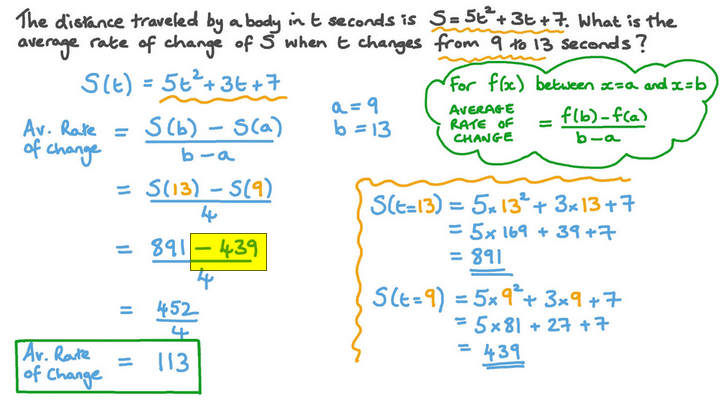 The distance traveled by a body in t seconds is S = 5t² + 3t + 7. What is the
average rate of change of S when t changes from 9 to 13 seconds?
S(t) = 5t² + 3t + 7
a = 9
b = 13
For f(x) between x=a and x=b
AVERAGE RATE OF CHANGE = f(b) - f(a) / b - a
Av. Rate of change = S(b) - S(a) / b - a
= S(13) - S(9) / 4
= 891 - 439 / 4
= 452 / 4
Av. Rate of Change = 113
S(t=13) = 5 × 13² + 3 × 13 + 7
= 5 × 169 + 39 + 7
= 891
S(t=9) = 5 × 9² + 3 × 9 + 7
= 5 × 81 + 27 + 7
= 439